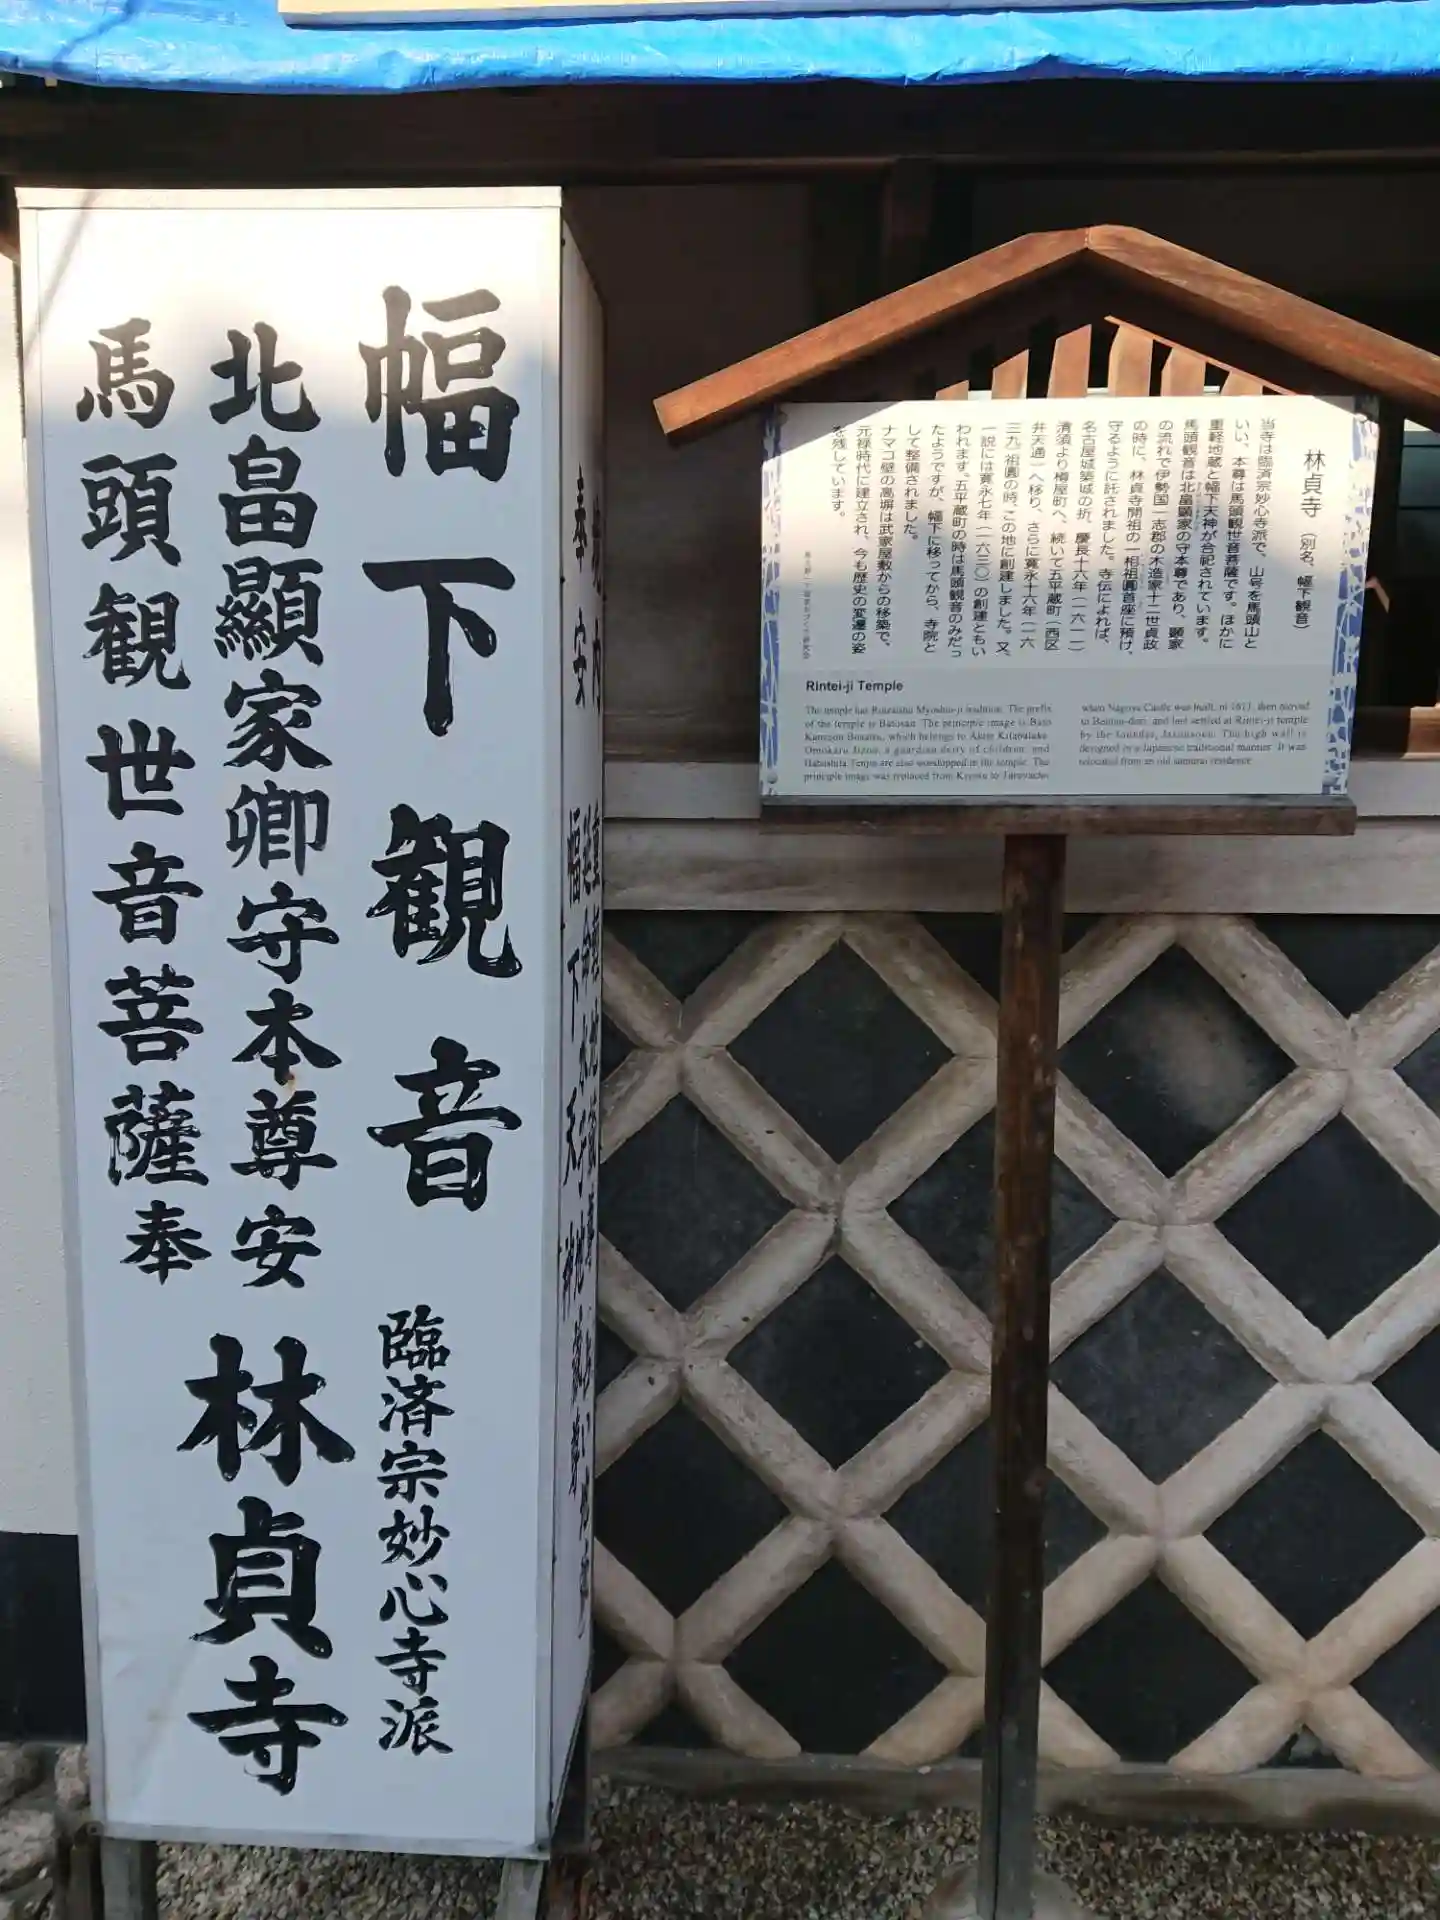 幅下観音
臨済宗妙心寺派
北畠顯家卿守本尊安
馬頭観世音菩薩奉
林貞寺
奉安
幅下天神
林貞寺(別名、幅下観音)
当寺は臨済宗妙心寺派で、山号を馬頭山と
いい。本尊は馬頭観世音菩薩です。ほかに
重軽地蔵と幅下天神が合祀されています。
馬頭観音は北畠顕家の守本尊であり、顕家
の流れで伊勢国一志郡の木造家十二世貞政
の時に、林貞寺開祖の一相祖圓首座に預け、
守るように託されました。寺伝によれば、
名古屋城築城の折、慶長十六年(一六一一)
清須より樽屋町へ、続いて五平蔵町(西区
弁天通一へ移り、さらに寛永十六年(一六
三九)祖圓の時、この地に創建しました。又、
一説には寛永七年(一六三〇)の創建ともい
われます。五平蔵町の時は馬頭観音のみだっ
たようですが、幅下に移ってから、寺院と
して整備されました。
ナマコ壁の高塀は武家屋敷からの移築で、
元禄時代に建立され、今も歴史の変遷の姿
を残しています。
Rintei-ji Temple
The temple has Rinzaishu Myoshin-ji tradition. The prefix
of the temple is Batosan. The principle image is Bato
Kannon Bosatsu, which belongs to Akiie Kitabatake.
Omokaru Jizou, a guardian deity of children, and
Habashita Tenjin are also worshipped in the temple. The
principle image was replaced from Kiyosu to Taruyacho
when Nagoya Castle was built, in 1611, then moved
to Benten-dori, and last settled at Rintei-ji temple
by the founder, The high wall is
designed in a Japanese traditional manner. It was
relocated from an old samurai residence.